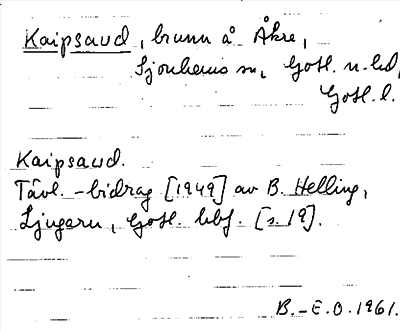 Kaipsaud, brunn å Åkre,
Sjonhems sn, Gotl. n. hd,
Gotl. l.
Kaipsaud.
Tävl.-bidrag [1949] av B. Helling,
Ljugarn, Gotl. hbf. [s. 19].
B.-E.O. 1961.